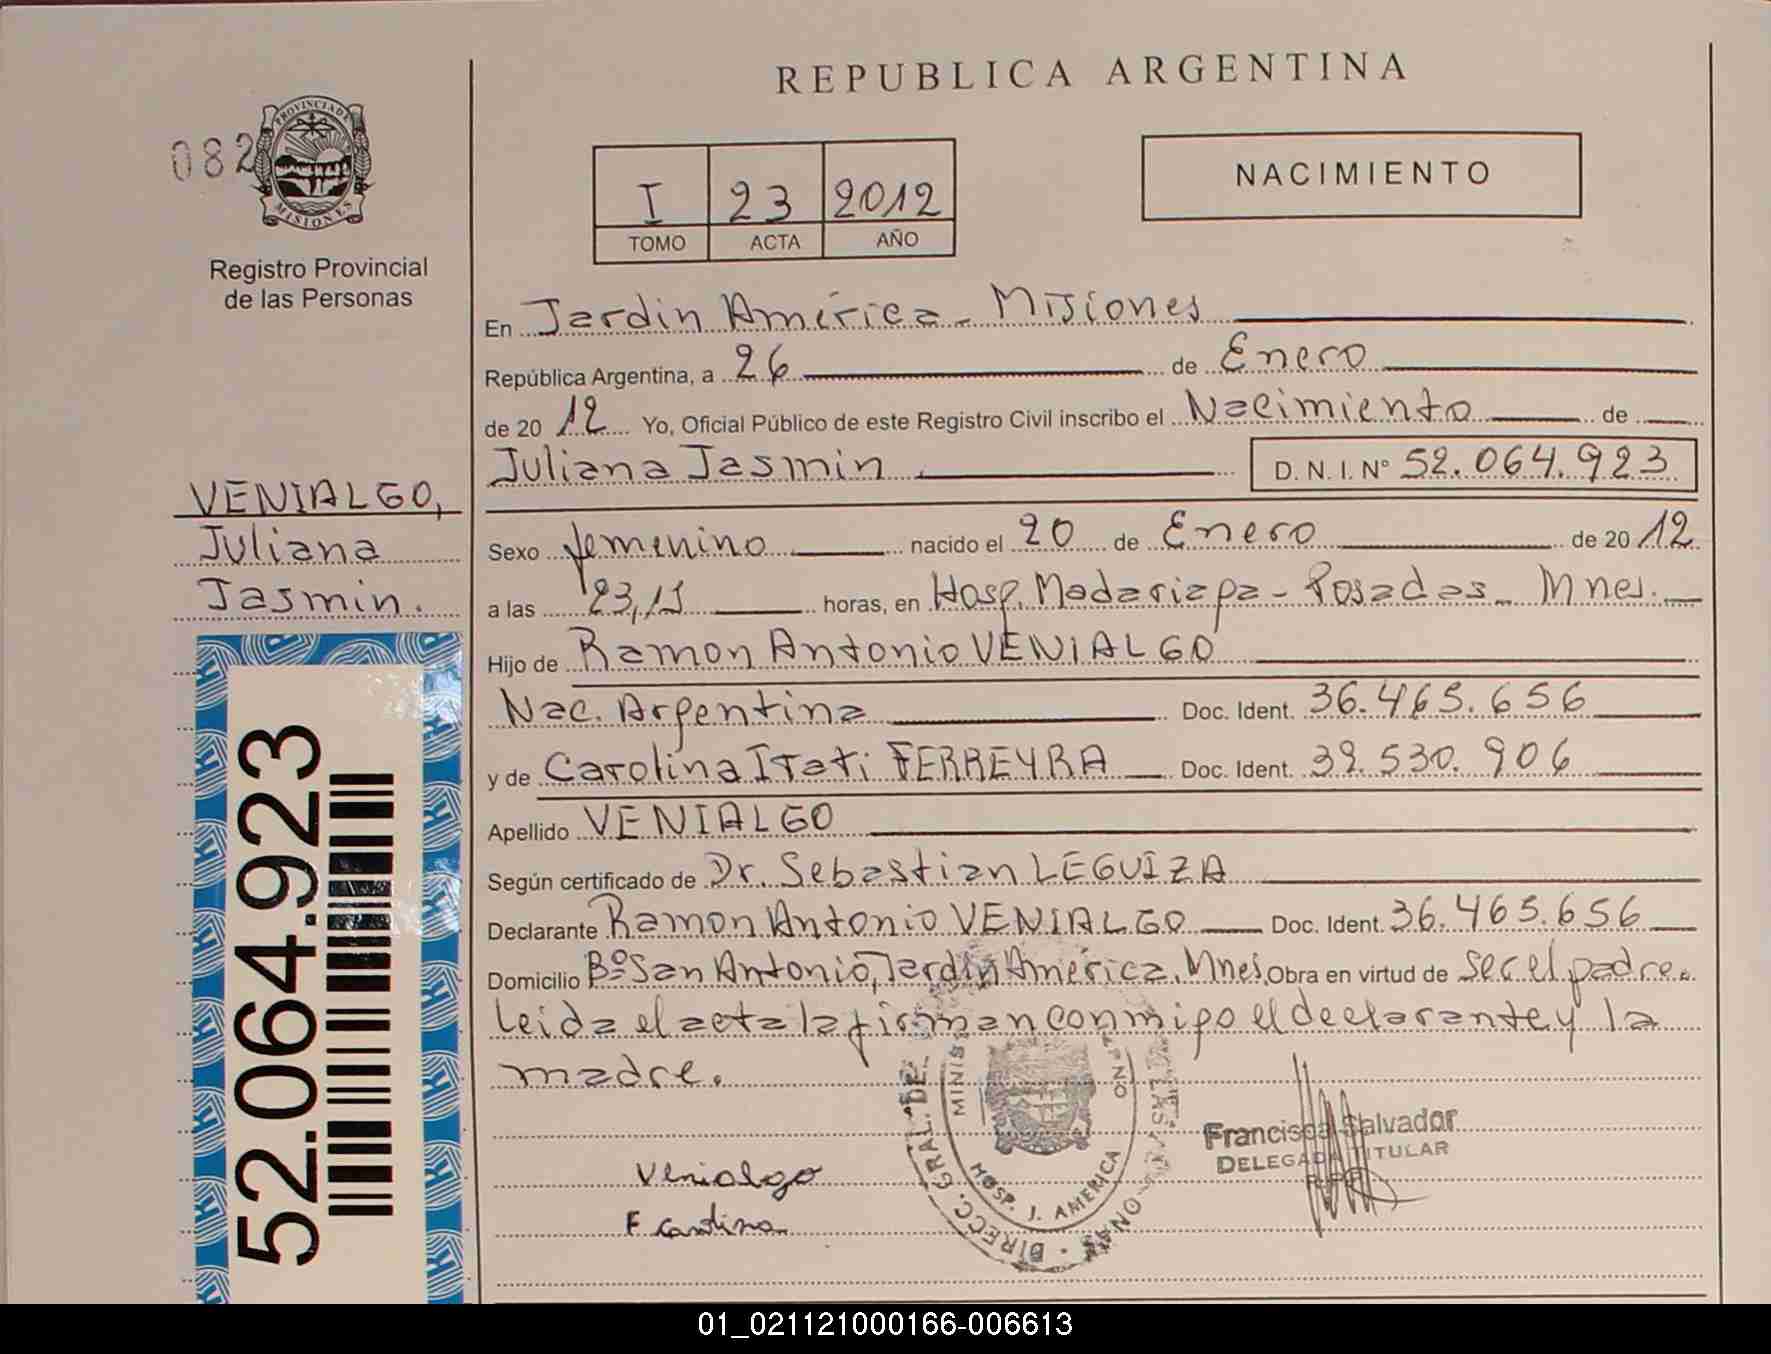 REPUBLICA ARGENTINA
082
PROVINCIA DE MISIONES
Registro Provincial
de las Personas
I 23 2012
TOMO ACTA AÑO
NACIMIENTO
En Jardin América - Misiones
República Argentina, a 26 de Enero
de 2012 Yo, Oficial Público de este Registro Civil inscribo el Nacimiento de
Juliana Jasmin D.N.I.Nº 52.064.923
VENIALGO,
Juliana
Jasmin.
Sexo femenino nacido el 20 de Enero de 2012
a las 23,15 horas, en Hosp. Madariaga - Posadas - Mnes.
Hijo de Ramon Antonio VENIALGO
Nac. Argentina Doc. Ident. 36.465.656
y de Carolina Itati FERREYRA Doc. Ident. 39.530.906
Apellido VENIALGO
Según certificado de Dr. Sebastian LEGUIZA
Declarante Ramon Antonio VENIALGO Doc. Ident. 36.465.656
Domicilio Bº San Antonio, Jardín América, Mnes. Obra en virtud de ser el padre.
Leida el acta la firman conmigo el declarante y la
madre.
52.064.923
DIRECC. GRAL. DE
MINIS
HOSP. J. AMERICA
Francisca Salvador
DELEGADA TITULAR
R.P.P.
Venialgo
F Carolina
01_021121000166-006613